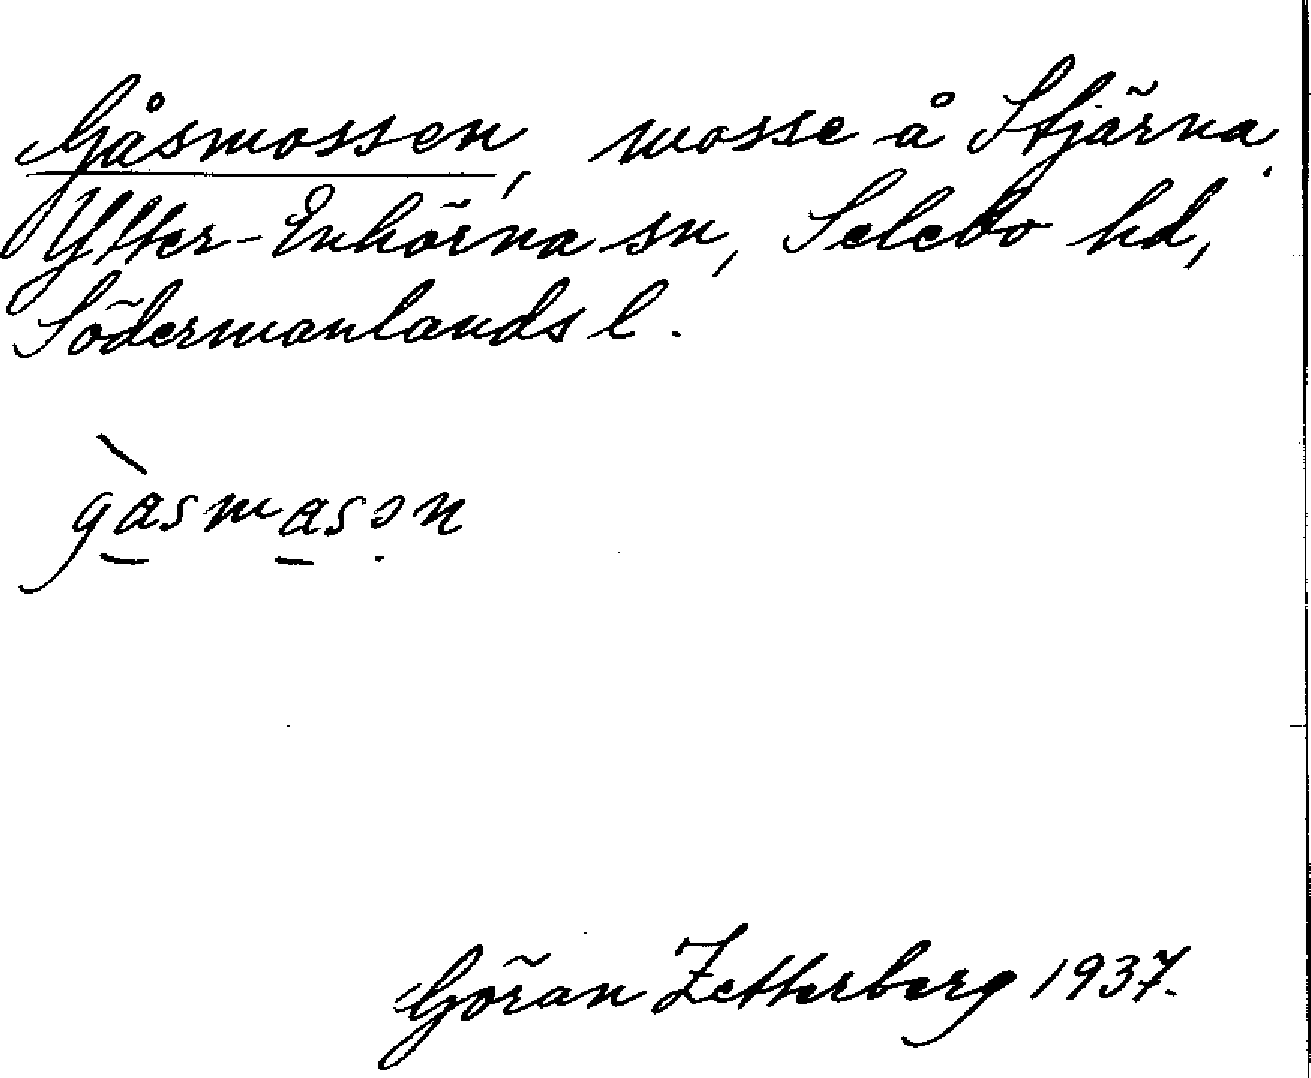 Gåsmossen, mosse å Stjärna.
Ytter-Enhörna sn, Selebo hd,
Södermanlands l.
gàsmasɔn
Göran Zetterberg 1937.